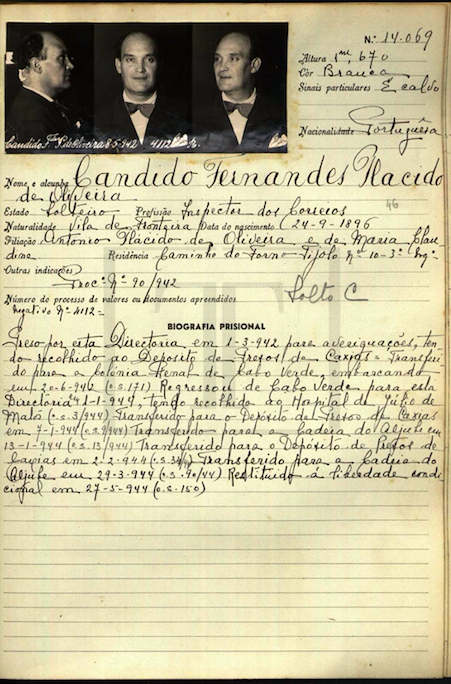 N.º 14.069
Altura 1m,670
Côr Branca
Sinais particulares E calvo
Nacionalidade Portuguêsa
Candido F. P. de Oliveira 8-5-942 4112
Nome e alcunha Candido Fernandes Placido
de Oliveira
46
Estado Solteiro Profissão Inspector dos Correios
Naturalidade Vila de Fronteira Data do nascimento 24-9-1896
Filiação Antonio Placido de Oliveira e de Maria Clau
dina Residência Caminho do Forno Tijolo Nº 10-3º Esqº
Outras indicações)
Procº Nº 90/942
Solto C
Número do processo de valores ou documentos apreendidos
Negativo Nº 4112=
BIOGRAFIA PRISIONAL
Preso por esta Directoria em 1-3-942 para averiguações, ten
do recolhido ao Deposito de Presos de Caxias = Transferi
do para a Colónia Penal de Cabo Verde, embarcando
em 20-6-942 (o.s.171) Regressou de Cabo Verde para esta
Directoria 1-1-944, tendo recolhido ao Hospital de Julio de
Matos (o.s.3/944) Transferido para o Depósito de Presos de Caxias
em 7-1-944 (o.s.9/944) Transferido para a Cadeia do Aljube em
13-1-944 (o.s.13/944) Transferido para o Depósito de Presos de
Caxias em 2-2-944 (o.s.34/) Transferido para a Cadeia do
Aljube em 29-3-944 (o.s.90/44) Restituido á liberdade condi
cional em 27-5-944 (o.s.150)